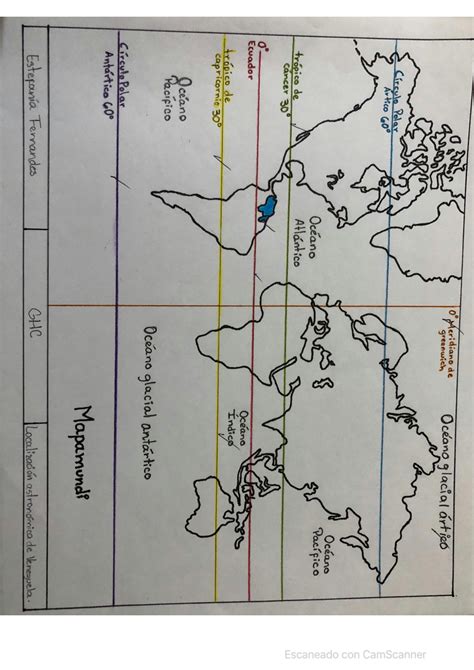 Océano glacial ártico
0° Meridiano de
greenwich
Círculo Polar
Ártico 60°
Océano
Atlántico
Océano
Pacífico
trópico de
cáncer 30°
0°
Ecuador
Océano
Índico
trópico de
capricornio 30°
Océano
Pacífico
Océano glacial antártico
Círculo Polar
Antártico 60°
Mapamundi
Estefanía Fernandes
GHC
Localización astronómica de Venezuela.
Escaneado con CamScanner